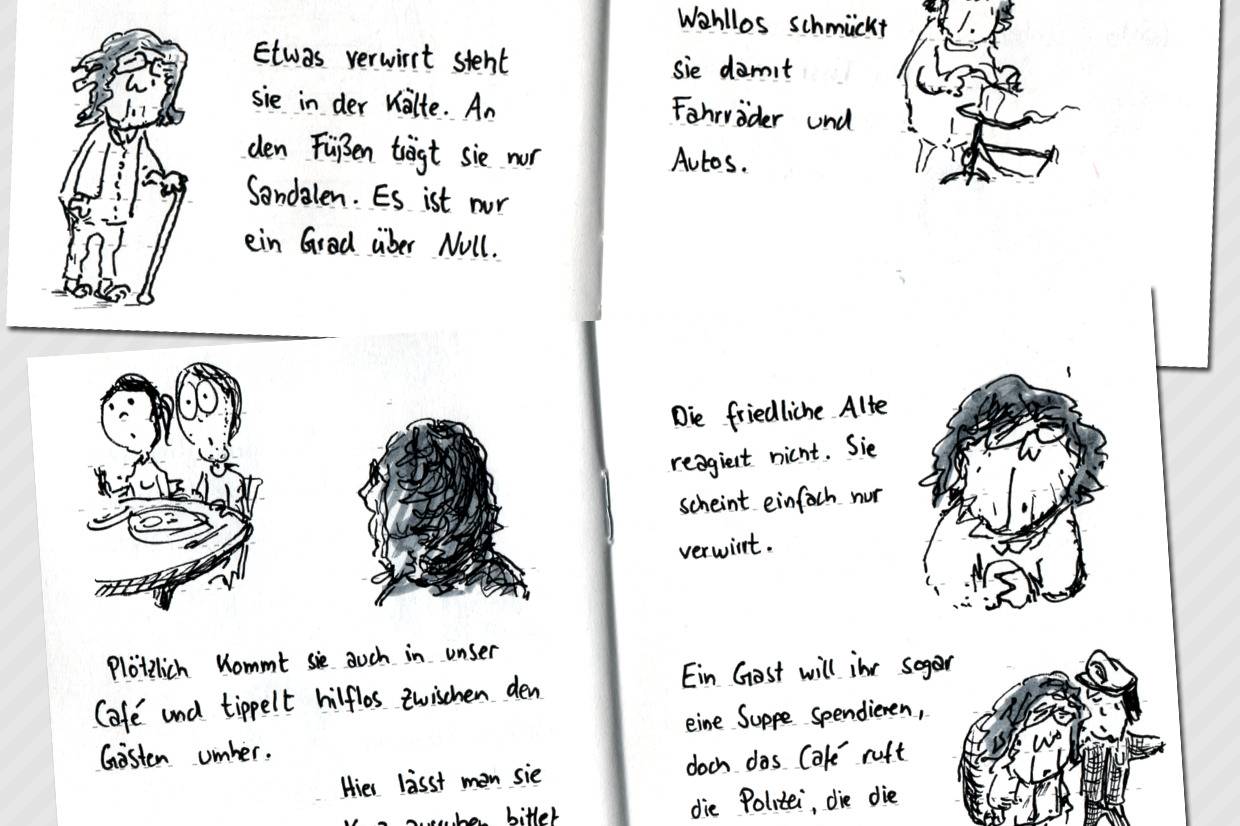 Etwas verwirrt steht
sie in der Kälte. An
den Füßen trägt sie nur
Sandalen. Es ist nur
ein Grad über Null.
Wahllos schmückt
sie damit
Fahrräder und
Autos.
Plötzlich kommt sie auch in unser
Café und tippelt hilflos zwischen den
Gästen umher.
Hier lässt man sie
ausruhen bittet
Die friedliche Alte
reagiert nicht. Sie
scheint einfach nur
verwirrt.
Ein Gast will ihr sogar
eine Suppe spendieren,
doch das Café ruft
die Polizei, die die